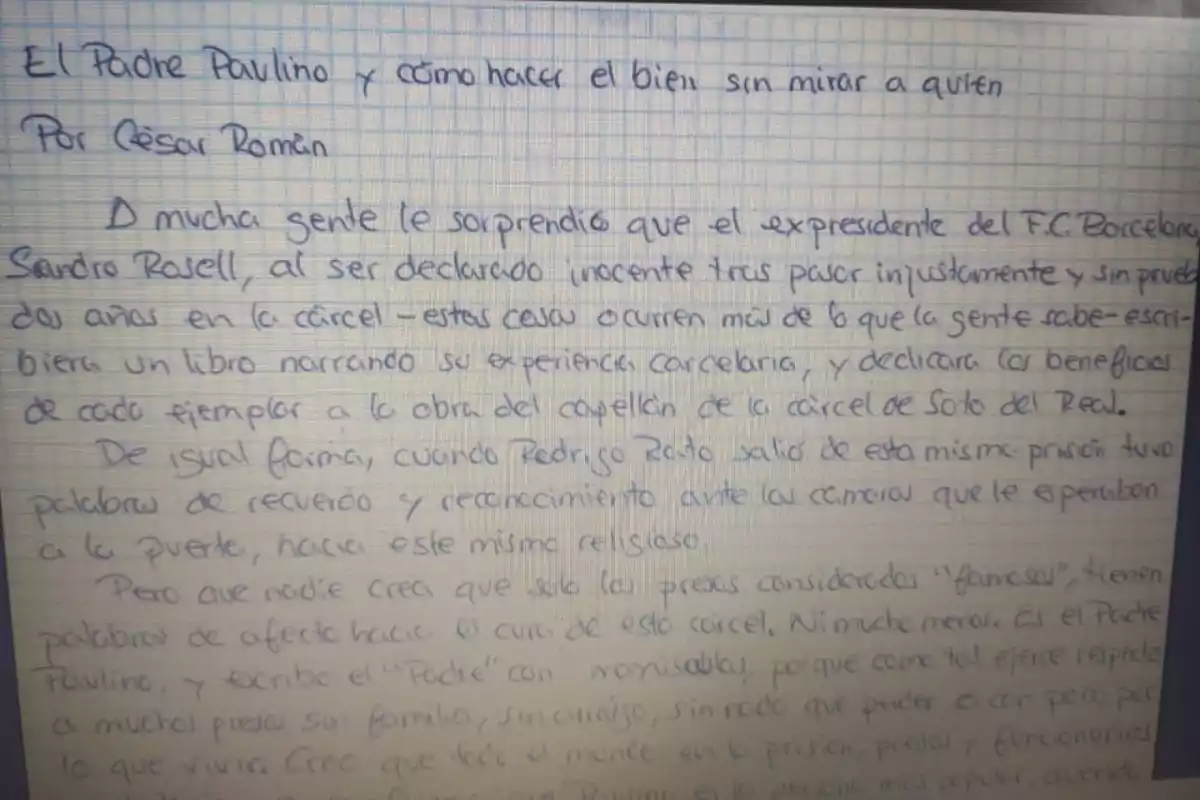 El Padre Paulino y cómo hacer el bien sin mirar a quién
Por César Román
A mucha gente le sorprendió que el expresidente del F.C. Barcelona
Sandro Rosell, al ser declarado inocente tras pasar injustamente y sin prueb
dos años en la cárcel - estas cosas ocurren más de lo que la gente sabe - escri-
biera un libro narrando su experiencia carcelaria, y dedicara los beneficios
de cada ejemplar a la obra del capellán de la cárcel de Soto del Real.
De igual forma, cuando Rodrigo Rato salió de esta misma prisión tuvo
palabras de recuerdo y reconocimiento ante las cámaras que le esperaban
a la puerta, hacia este mismo religioso.
Pero que nadie crea que solo los presos considerados "famosos", tienen
palabras de afecto hacia el cura de esta cárcel. Ni mucho menos. Es el Padre
Paulino, y escribo el "Padre" con mayúsculas, porque como tal ejerce respecto
a muchos presos sin familia, sin arraigo, sin nada que perder o por
lo que vivir. Creo que todo el mundo en la prisión, presos y funcionarios
Paulino es la persona más querida